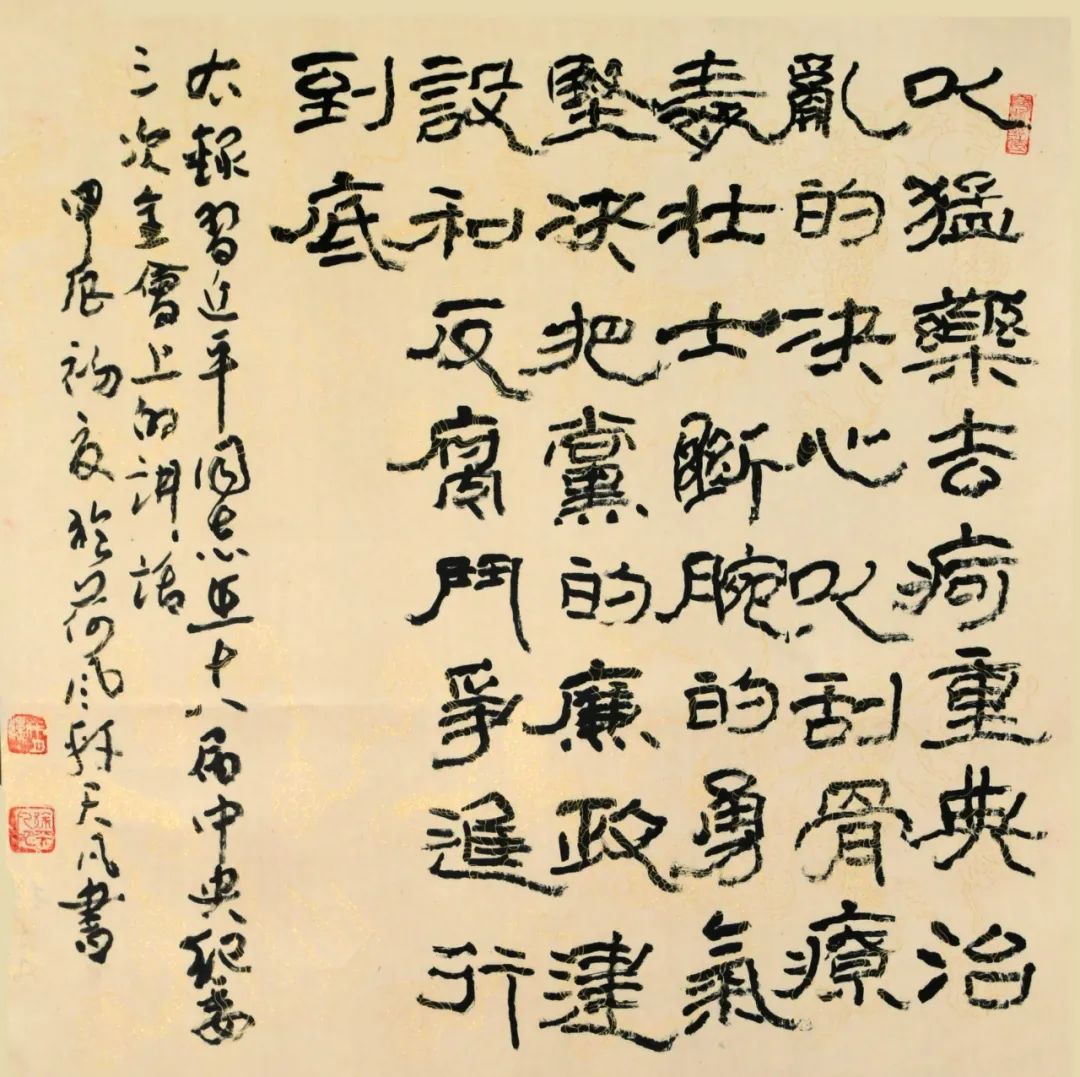 以猛藥去疴重典治
亂的决心以刮骨療
毒壯士斷腕的勇氣
堅决把黨的廉政建
設和反腐鬥爭進行
到底
右錄習近平同志在十八屆中央紀委
三次全會上的講話
甲辰初夏於荷風軒天風書